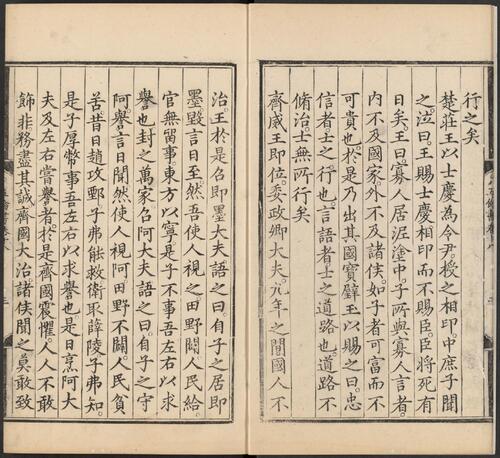 行之矣
楚莊王以士慶為令尹。授之相印中庶子聞
之泣曰。王賜士慶相印而不賜臣。臣將死有
日矣。王曰寡人居泥塗中子所與寡人言者。
内不及國家。外不及諸侯。如子者可富而不
可貴也。於是乃出其國寶璧玉以賜之曰。忠
信者士之行也。言語者士之道路也。道路不
脩治士無所行矣
齊威王即位。委政卿大夫。九年之間國人不
治。王於是召即墨大夫語之曰。自子之居即
墨毀言日至。然吾使人視之田野闢。人民給。
官無留事。東方以寧是子不事吾左右以求
譽也封之萬家召阿大夫語之曰。自子之守
阿。譽言日聞然使人視阿田野不闢。人民貧
苦昔日趙攻鄄子弗能救衛取薛陵子弗知。
是子厚幣事吾左右以求譽也是日烹阿大
夫及左右嘗譽者於是齊國震懼。人人不敢
飾非。務盡其誠齊國大治諸侯聞之莫敢致